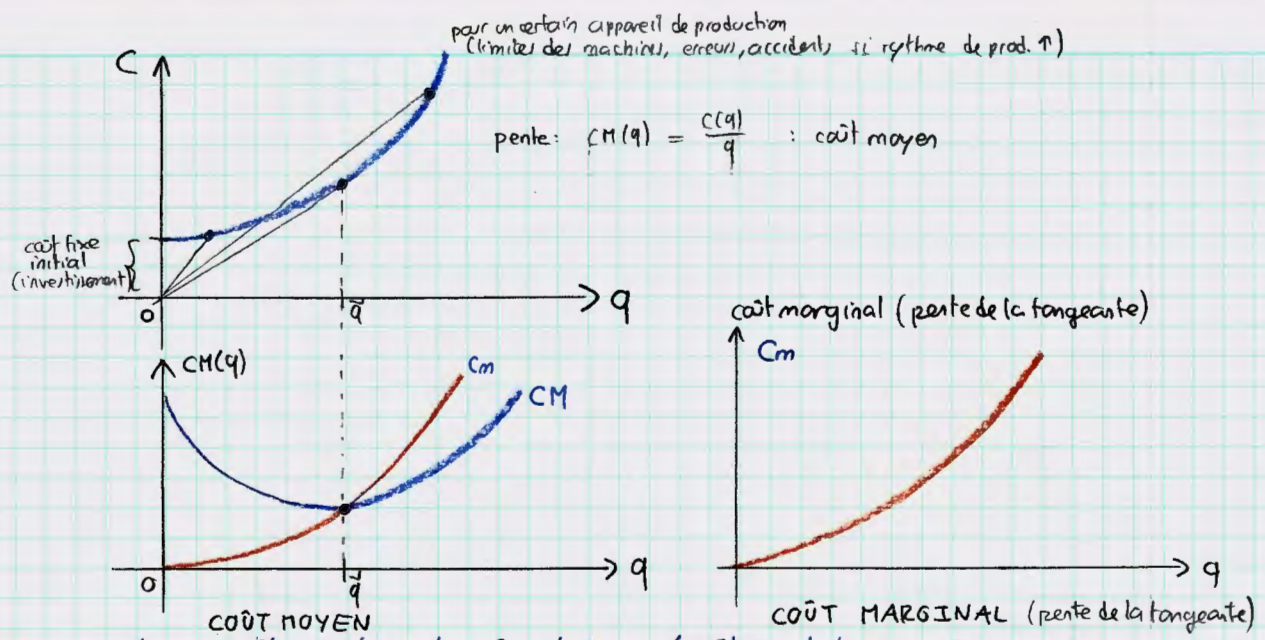 pour un certain appareil de production
(limites des machines, erreurs, accidents si rythme de prod. ↑)
C
pente: CM(q) = C(q)/q : coût moyen
coût fixe
initial
(investissement)
0
q̄
q
coût marginal (pente de la tangeante)
CM(q)
Cm
CM
Cm
0
q̄
q
q
COÛT MOYEN
COÛT MARGINAL (pente de la tangeante)